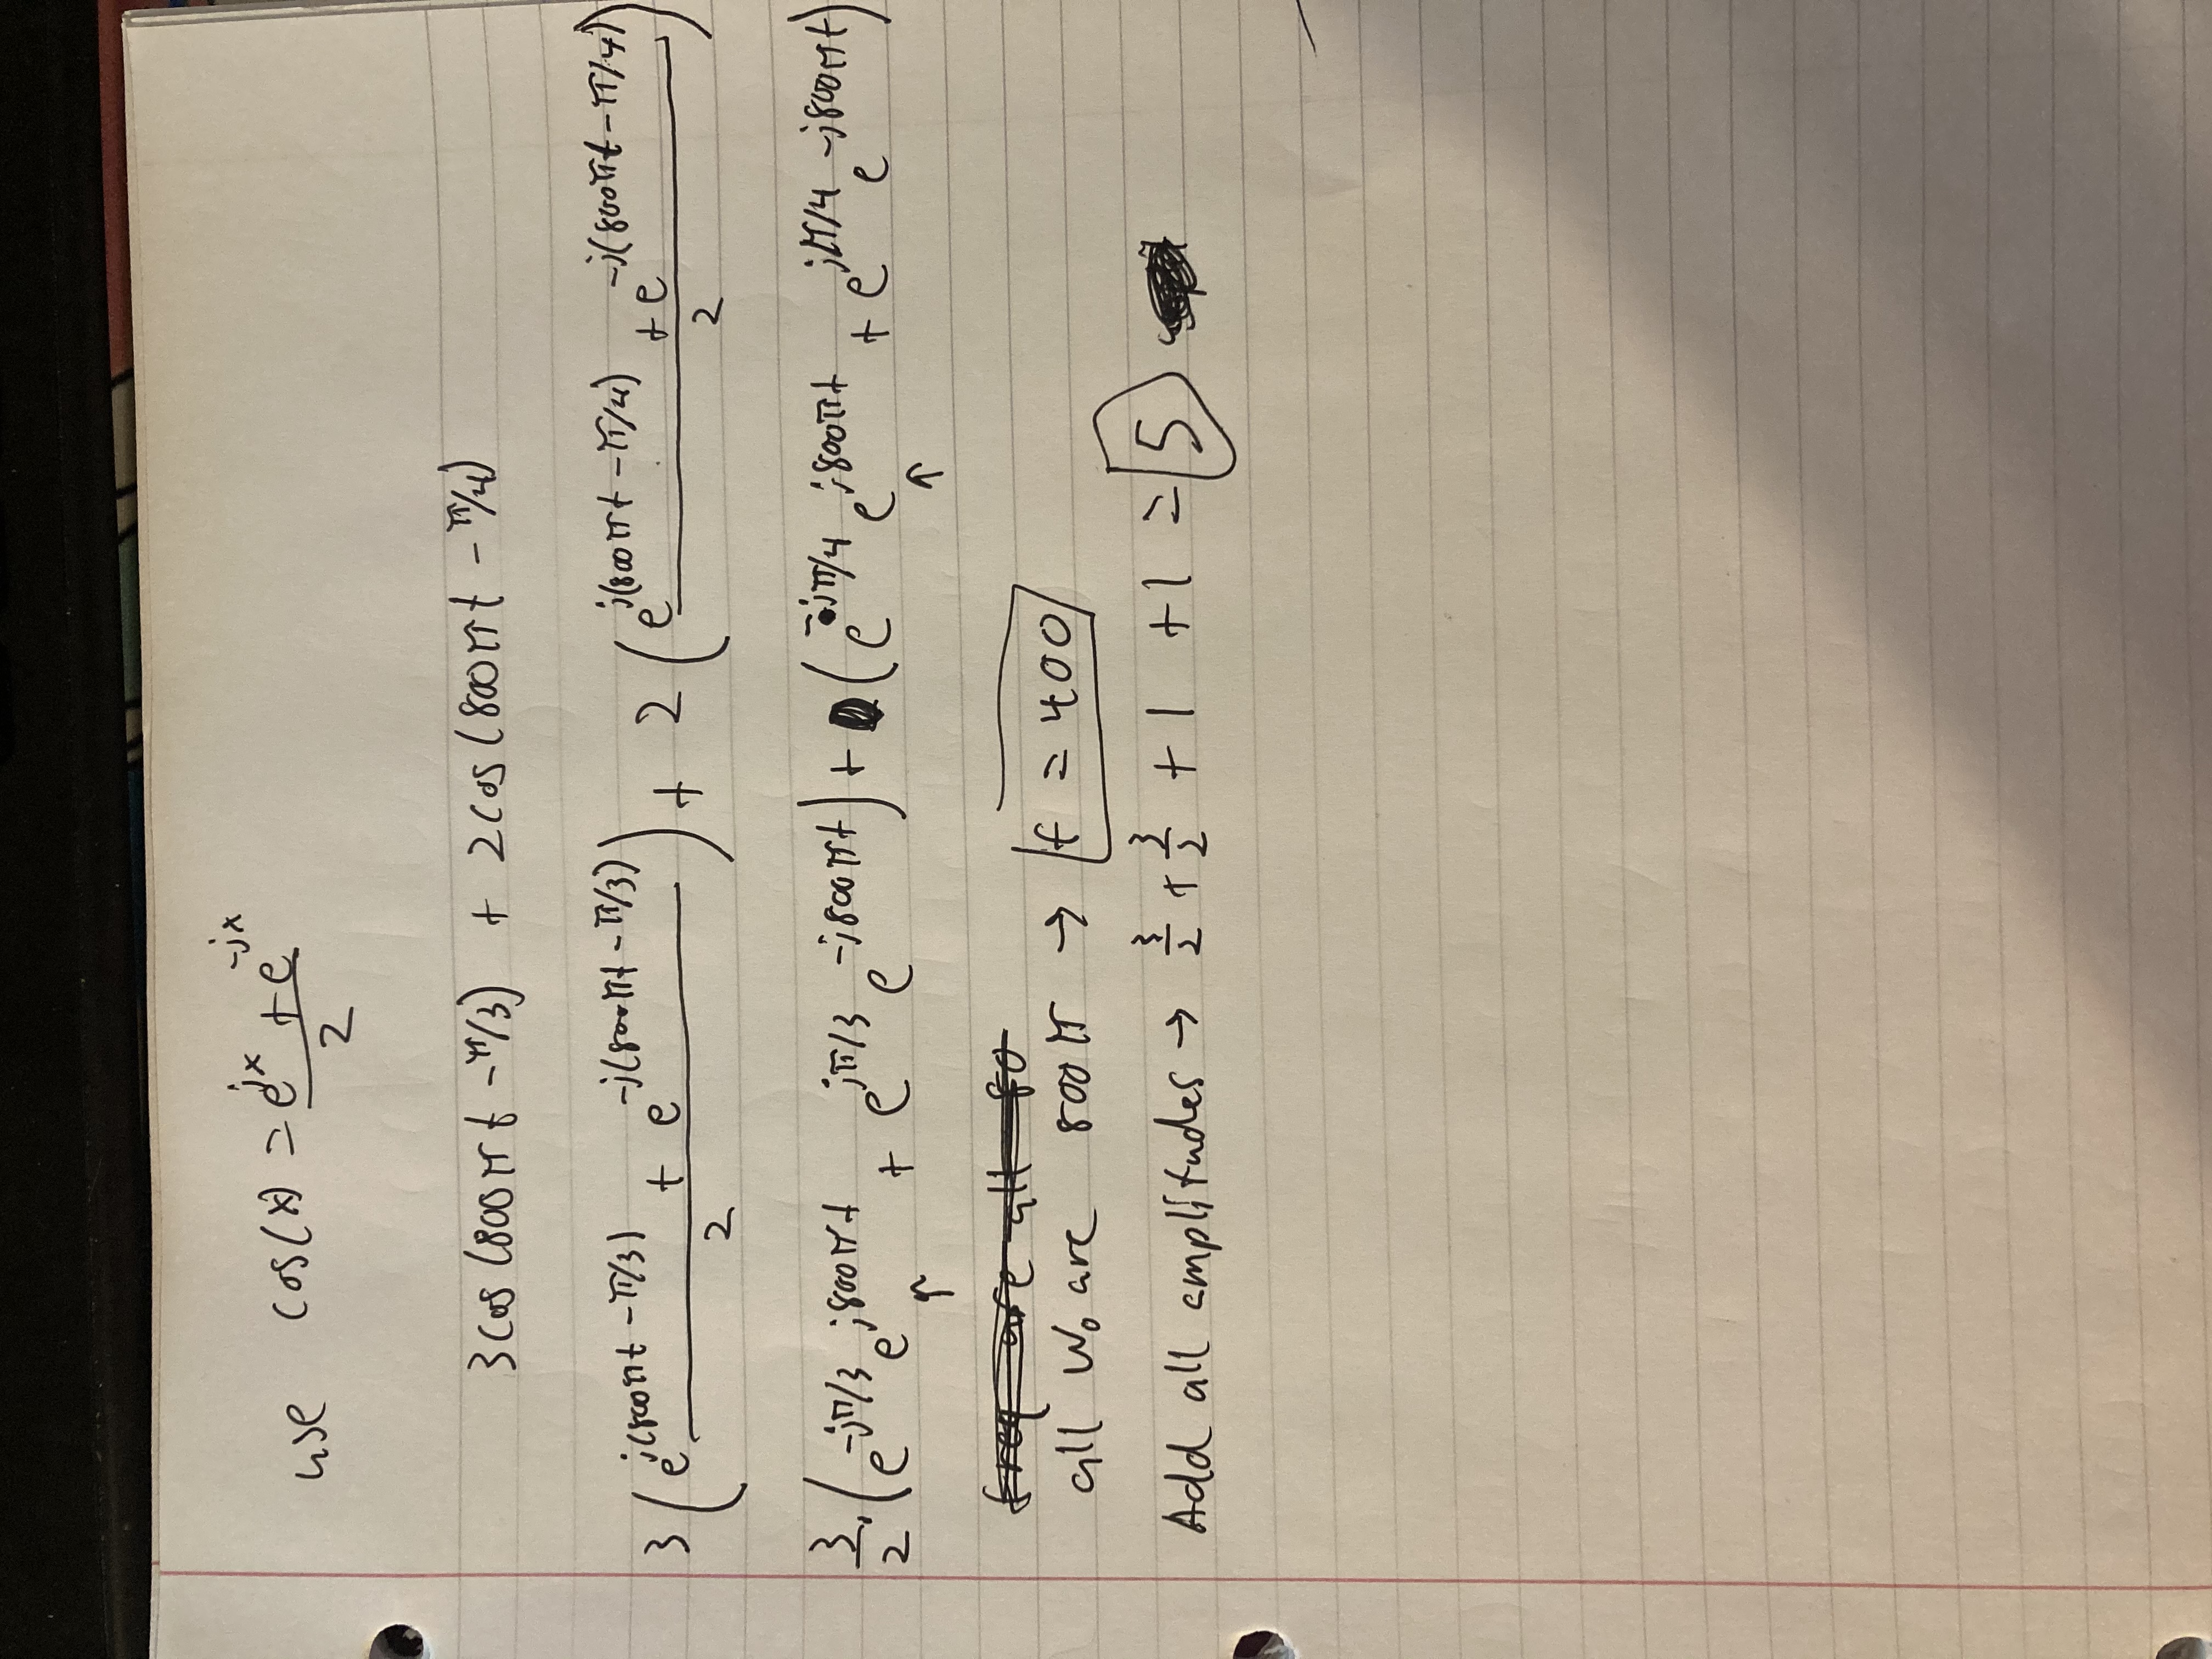 use cos(x) = e^jx + e^-jx / 2
3cos(800πt - π/3) + 2cos(800πt - π/4)
3(e^j(800πt - π/3) + e^-j(800πt - π/3) / 2) + 2(e^j(800πt - π/4) + e^-j(800πt - π/4) / 2)
3/2 · (e^-jπ/3 e^j800πt + e^jπ/3 e^-j800πt) + (e^-jπ/4 e^j800πt + e^jπ/4 e^-j800πt)
↑ ↑
freq are all 80
all W₀ are 800π → f = 400
Add all amplitudes → 3/2 + 3/2 + 1 + 1 = 5